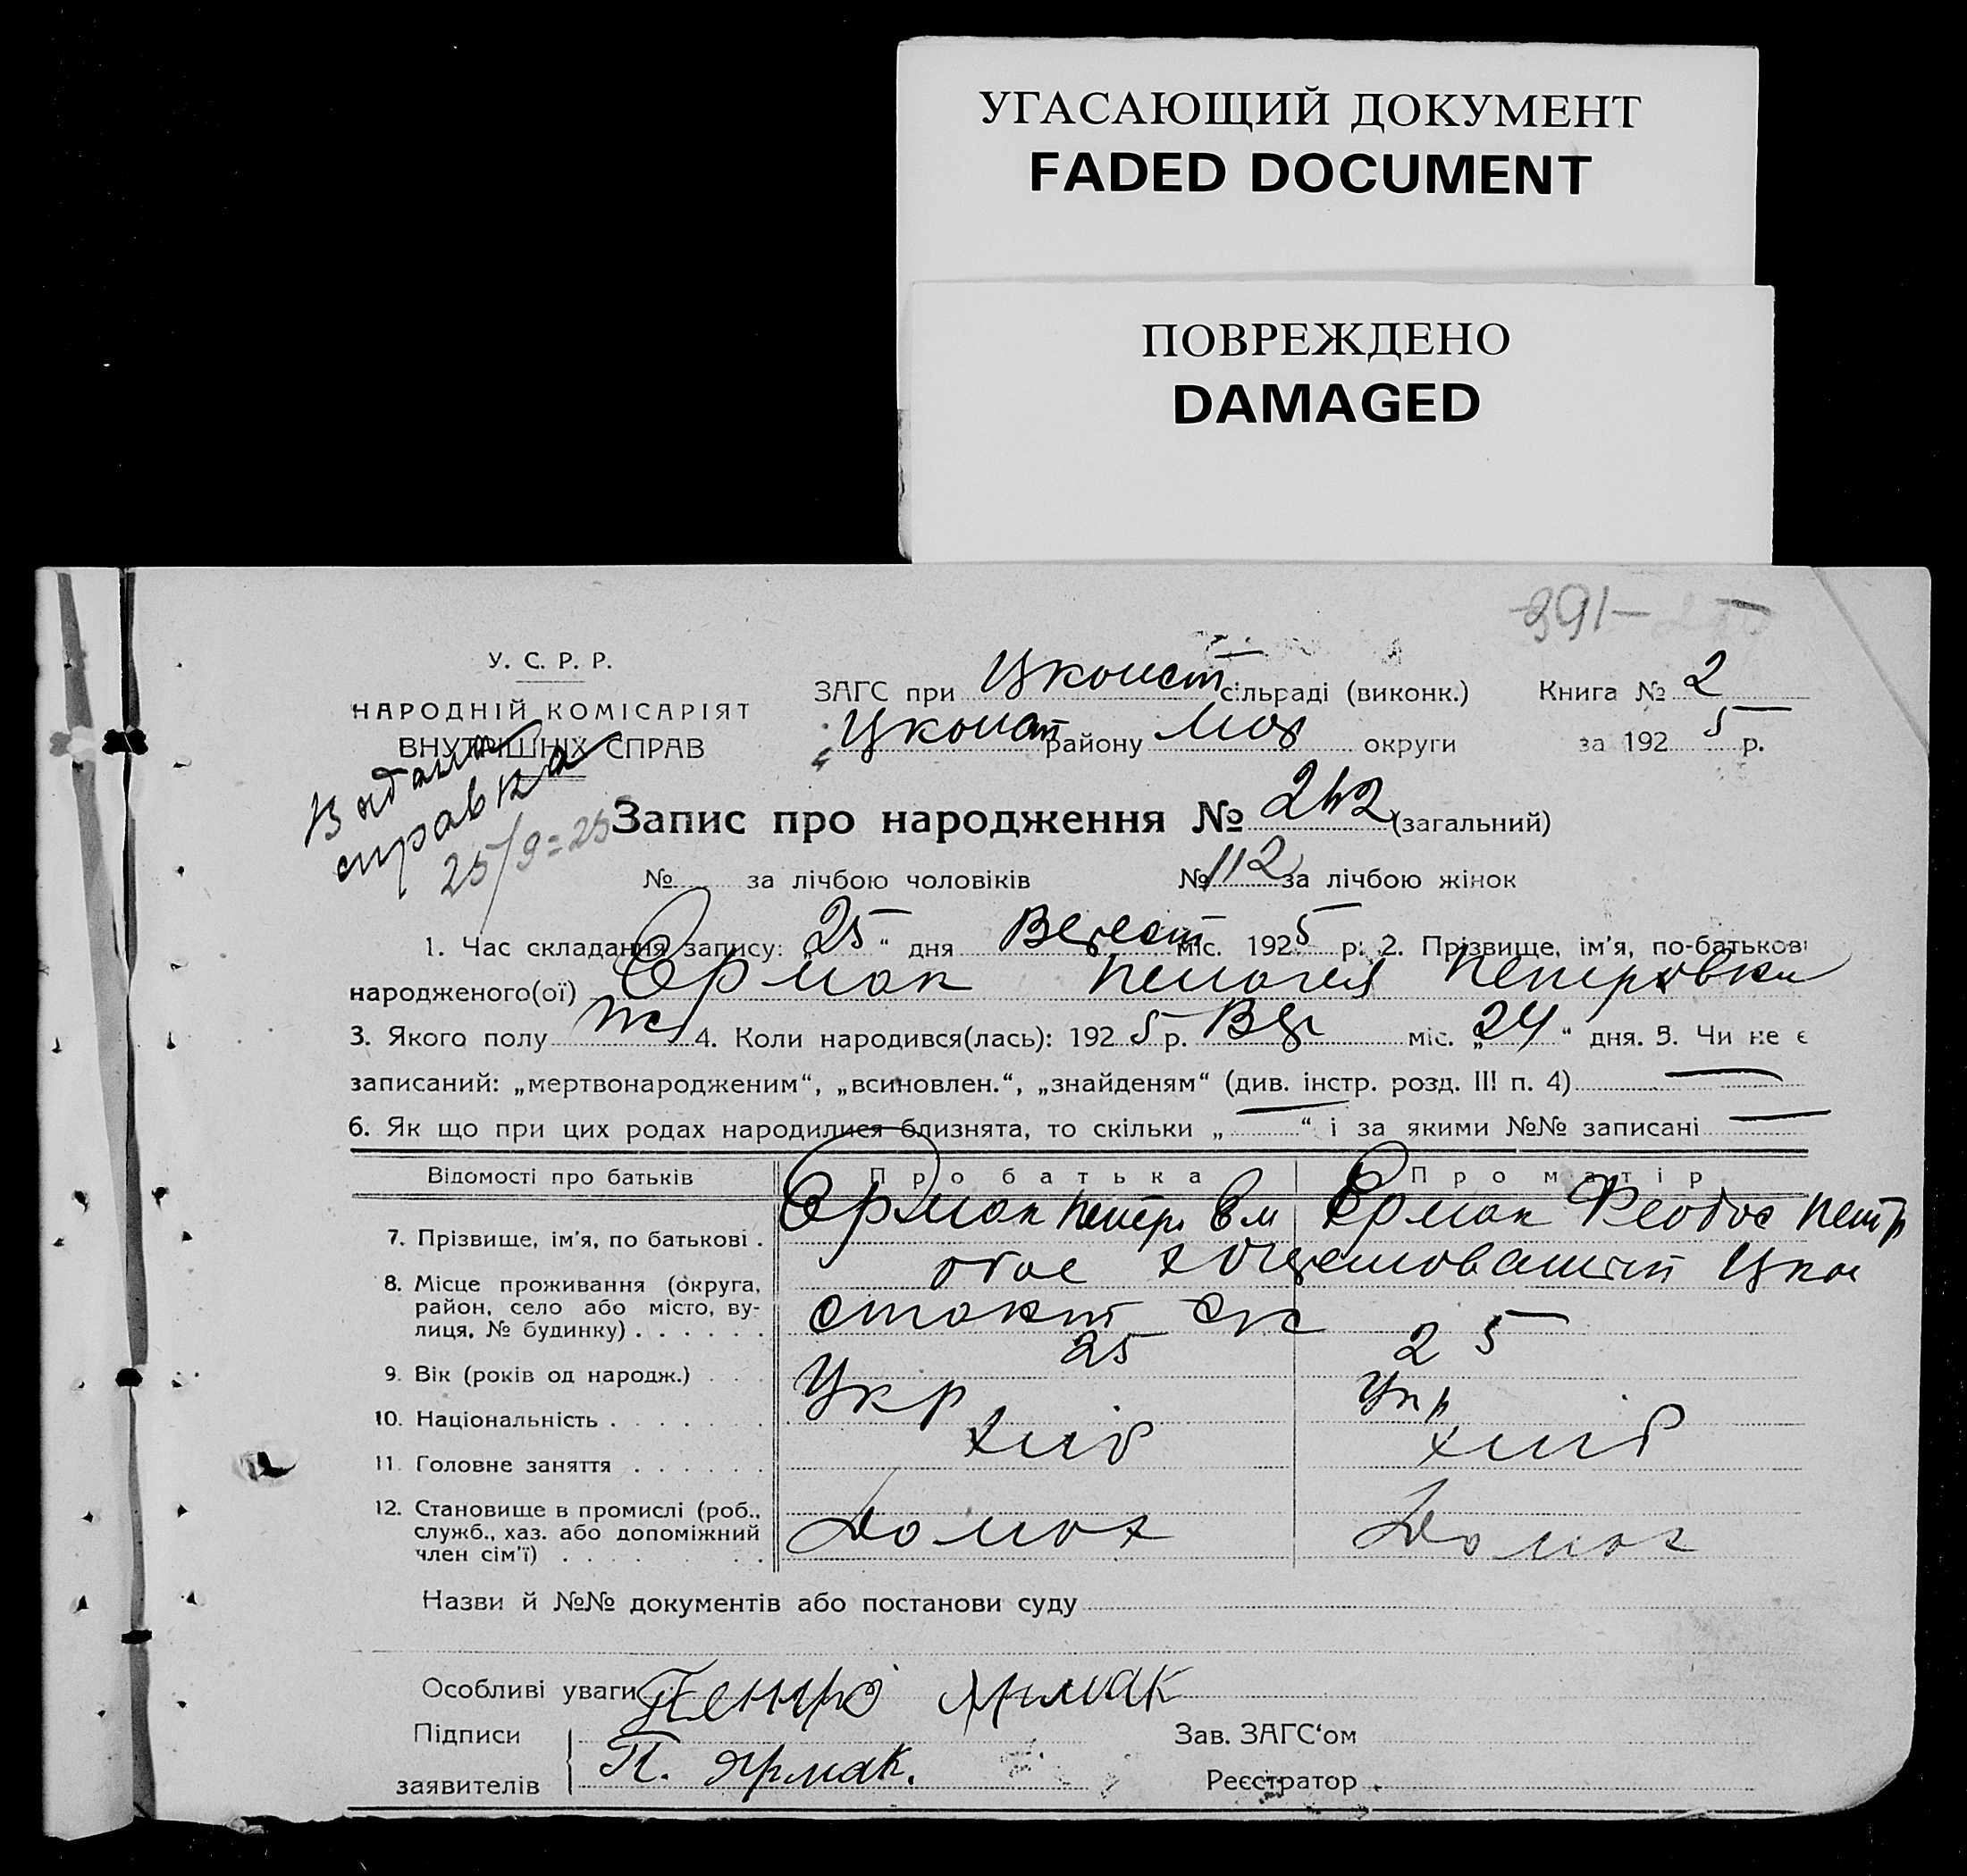 УГАСАЮЩИЙ ДОКУМЕНТ
FADED DOCUMENT
ПОВРЕЖДЕНО
DAMAGED
391—
У. С. Р. Р.
НАРОДНІЙ КОМІСАРІЯТ
ВНУТРІШНІХ СПРАВ
Видана
справка
25/9=25
ЗАГС при Цконст сільраді (виконк.) Книга № 2
Цконст району округи за 1925 р.
Запис про народження № 242 (загальний)
№ за лічбою чоловіків № 112 за лічбою жінок
1. Час складання запису: „25“ дня Верест міс. 1925 р. 2. Прізвище, ім'я, по-батькові
народженого(ої) Єрмак Пелагея Петровна
3. Якого полу ж 4. Коли народився(лась): 1925 р. Вер міс. „24“ дня. 5. Чи не є
записаний: „мертвонародженим“, „всиновлен.“, „знайденям“ (див. інстр. розд. III п. 4) —
6. Як що при цих родах народилися близнята, то скільки „—“ і за якими №№ записані —
Відомості про батьків Про батька Про матір
7. Прізвище, ім'я, по батькові . Єрмак Петр Єрмак Феодос Петр
8. Місце проживання (округа, район, село або місто, вулиця, № будинку) . . . . . . обое
9. Вік (років од народж.) . . . 25 25
10. Національність . . . . . . . Укр Укр
11. Головне заняття . . . . . . хліб хліб
12. Становище в промислі (роб., служб., хаз. або допоміжний член сім'ї) . . . . . . . Домох Домох
Назви й №№ документів або постанови суду
Особливі уваги Петро Ярмак
Підписи
заявителів П. Ярмак.
Зав. ЗАГС'ом
Реєстратор